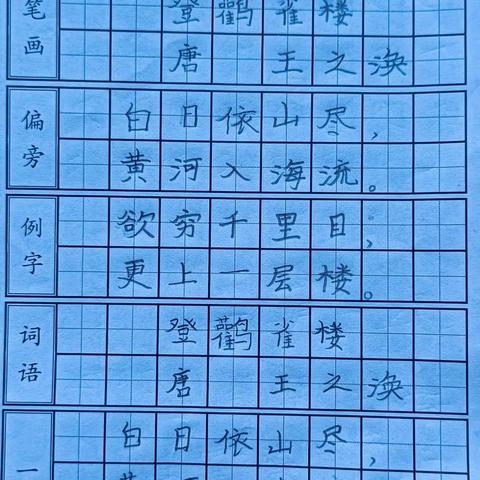 笔画
登鹳雀楼
唐 王之涣
偏旁
白日依山尽，
黄河入海流。
例字
欲穷千里目，
更上一层楼。
词语
登鹳雀楼
唐 王之涣
一
白日依山尽，